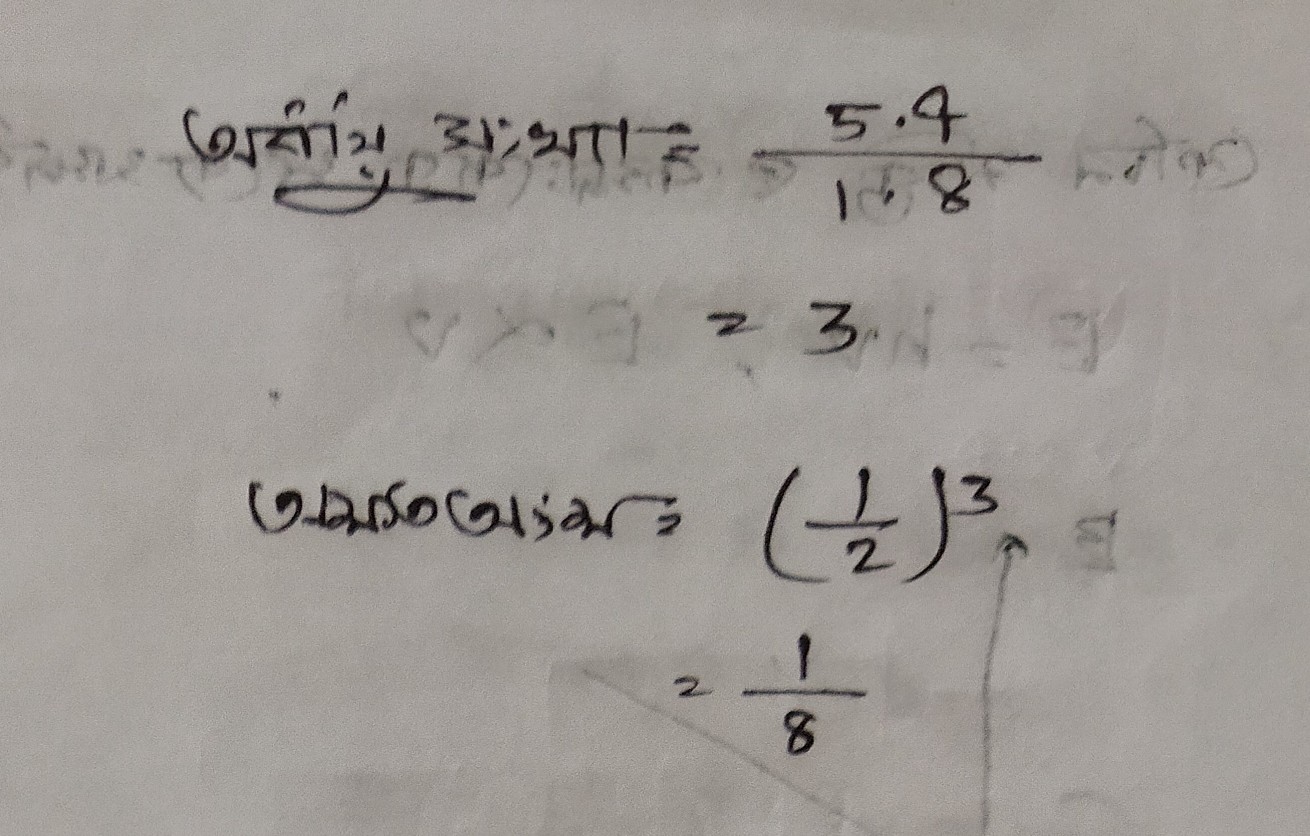 অর্ধায়ু সংখ্যা = 5.4 / 1.8
= 3
অক্ষত অংশ = (1/2)^3
= 1/8